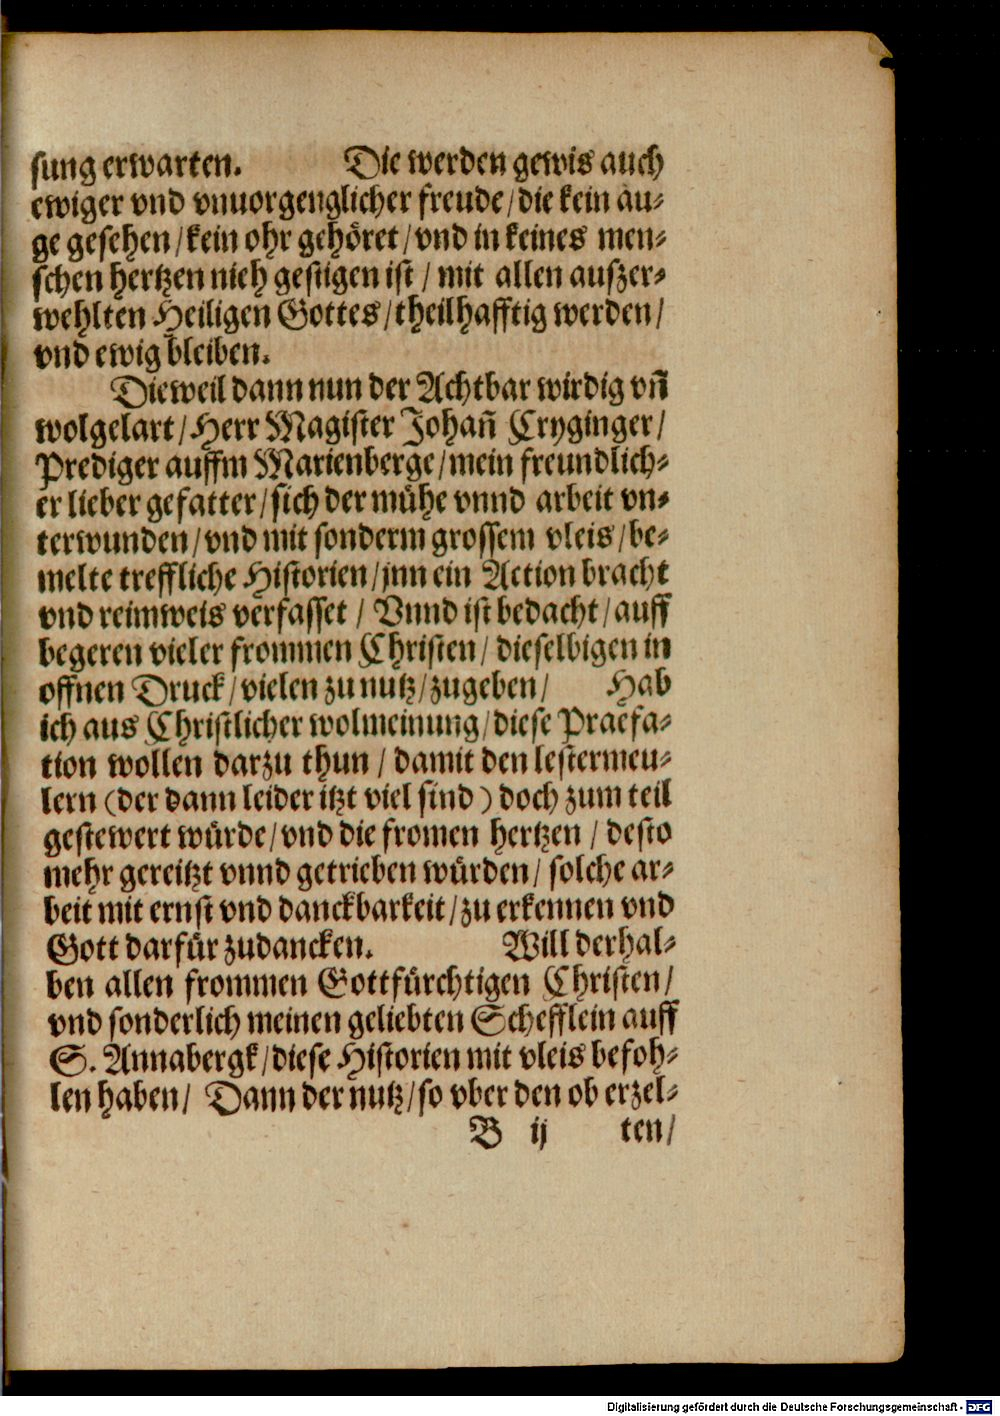 sung erwarten. Die werden gewis auch
ewiger vnd vnuorgenglicher freude/die kein au-
ge gesehen/kein ohr gehöret/vnd in keines men-
schen hertzen nieh gestigen ist / mit allen auszer-
wehlten Heiligen Gottes/theilhafftig werden/
vnd ewig bleiben.
Dieweil dann nun der Achtbar wirdig vñ
wolgelart/Herr Magister Johañ Cryginger/
Prediger auffm Marienberge/mein freundlich-
er lieber gefatter/sich der mühe vnnd arbeit vn-
terwunden/vnd mit sonderm grossem vleis/be-
melte treffliche Historien/jnn ein Action bracht
vnd reimweis verfasset / Vnnd ist bedacht/auff
begeren vieler frommen Christen/dieselbigen in
offnen Druck/vielen zu nutz/zugeben/ Hab
ich aus Christlicher wolmeinung/diese Praefa-
tion wollen darzu thun / damit den lestermeu-
lern (der dann leider itzt viel sind) doch zum teil
gestewert würde/vnd die fromen hertzen / desto
mehr gereitzt vnnd getrieben würden/ solche ar-
beit mit ernst vnd danckbarkeit/zu erkennen vnd
Gott darfür zudancken. Will derhal-
ben allen frommen Gottfürchtigen Christen/
vnd sonderlich meinen geliebten Schefflein auff
S. Annabergk/diese Historien mit vleis befoh-
len haben/ Dann der nutz/so vber den ob erzel-
B ij ten/
Digitalisierung gefördert durch die Deutsche Forschungsgemeinschaft - DFG